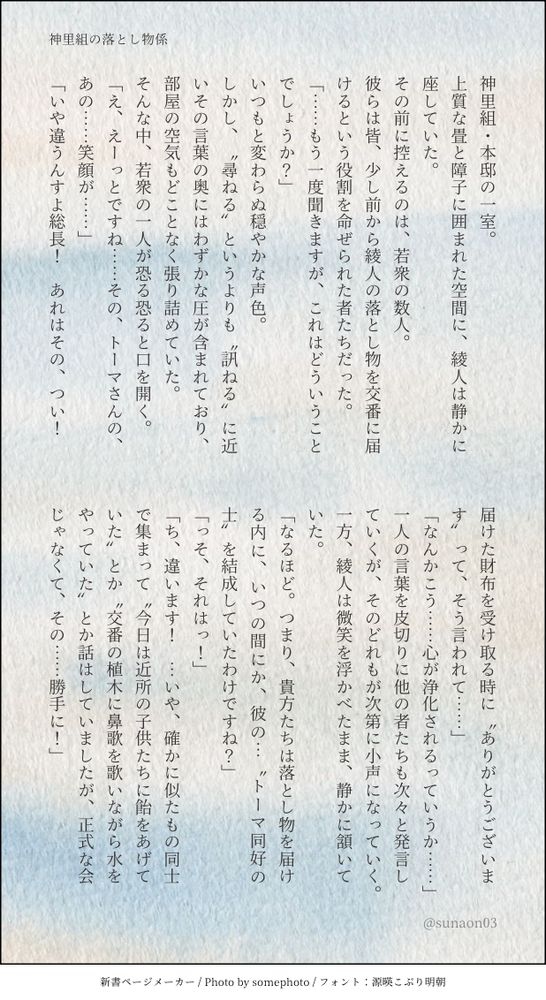 神里組の落とし物係
神里組・本邸の一室。
上質な畳と障子に囲まれた空間に、綾人は静かに
座していた。
その前に控えるのは、若衆の数人。
彼らは皆、少し前から綾人の落とし物を交番に届
けるという役割を命ぜられた者たちだった。
「……もう一度聞きますが、これはどういうこと
でしょうか?」
いつもと変わらぬ穏やかな声色。
しかし、〝尋ねる〟というよりも〝訊ねる〟に近
いその言葉の奥にはわずかな圧が含まれており、
部屋の空気もどことなく張り詰めていた。
そんな中、若衆の一人が恐る恐ると口を開く。
「え、えーっとですね……その、トーマさんの、
あの……笑顔が……」
「いや違うんすよ総長! あれはその、つい!
届けた財布を受け取る時に〝ありがとうございま
す〟って、そう言われて……」
「なんかこう……心が浄化されるっていうか……」
一人の言葉を皮切りに他の者たちも次々と発言し
ていくが、そのどれもが次第に小声になっていく。
一方、綾人は微笑を浮かべたまま、静かに頷いて
いた。
「なるほど。つまり、貴方たちは落とし物を届け
る内に、いつの間にか、彼の…〝トーマ同好の
士〟を結成していたわけですね?」
「っそ、それはっ!」
「ち、違います! …いや、確かに似たもの同士
で集まって〝今日は近所の子供たちに飴をあげて
いた〟とか〝交番の植木に鼻歌を歌いながら水を
やっていた〟とか話はしていましたが、正式な会
じゃなくて、その……勝手に!」
@sunaon03
新書ページメーカー / Photo by somephoto / フォント:源暎こぶり明朝